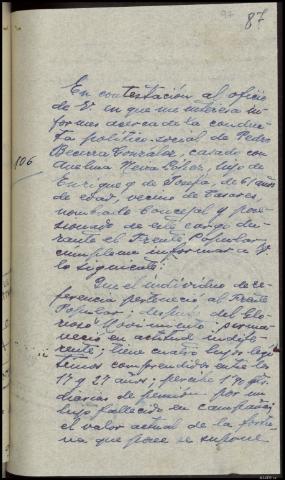 97 87
En contestación al oficio
de V. en que me interesa in
formes acerca de la conduc
ta político-social de Pedro
Becerra Gonzalez, casado con
Avelina Neira López, hijo de
Enrique y de Josefa, de 61 años
106
de edad, vecino de Casares,
nombrado Concejal y pose
sionado de este cargo du
rante el Frente Popular
cumpleme informar a V.
lo siguiente:
Que el individuo de re
ferencia pertenecio al Frente
Popular; despues del Glo
rioso Movimiento perma
necio en actitud indife
rente; tiene cuatro hijos legi
timos comprendidos entre los
17 y 27 años; percibe
diarias de pension por un
hijo fallecido en campaña;
el valor actual de la fortu
na que posee se supone